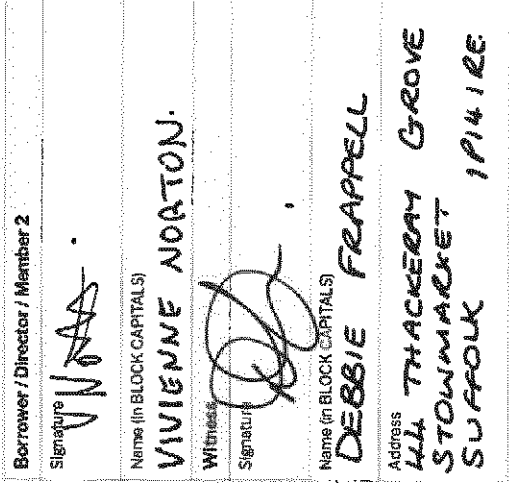 Borrower / Director / Member 2
Signature
Name (in BLOCK CAPITALS)
VIVIENNE NORTON.
Witness
Signature
Name (in BLOCK CAPITALS)
DEBBIE FRAPPELL
Address
44 THACKERAY GROVE
STOWMARKET
SUFFOLK IP14 1RE.